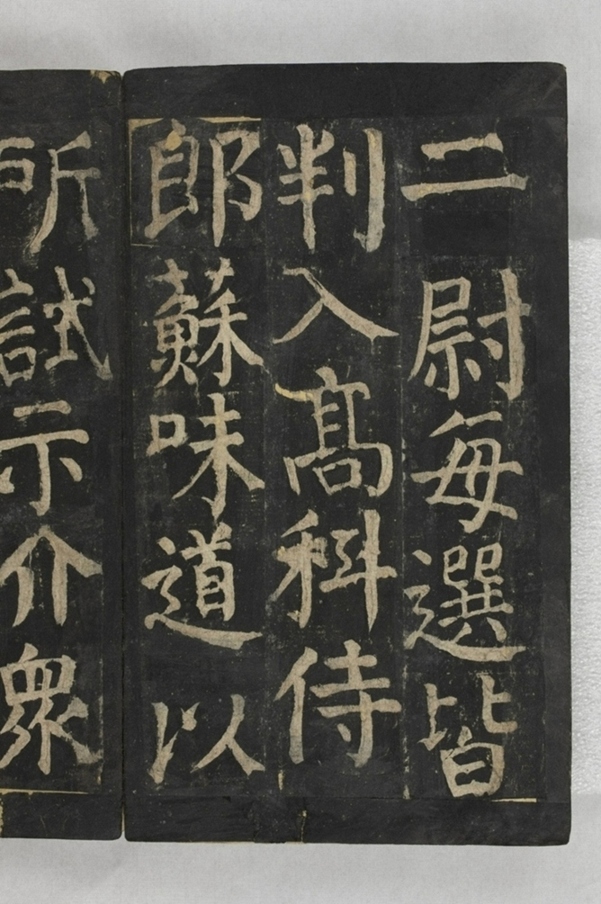 二尉每選皆
判入髙科侍
郎蘇味道以
所試示介衆